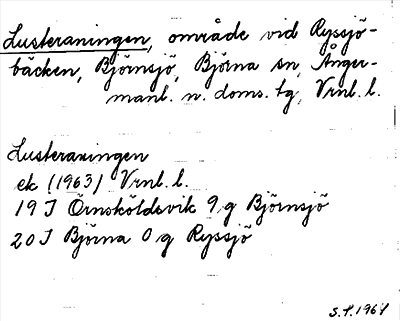 Lusteraningen, område vid Ryssjö-
bäcken, Björnsjö, Björna sn, Ånger-
manl. n. doms. tg, Vrnl. l.
Lusteraningen
ek (1963) Vrnl. l.
19 J Örnsköldsvik 9 g Björnsjö
20 J Björna 0 g Ryssjö
S.P. 1967